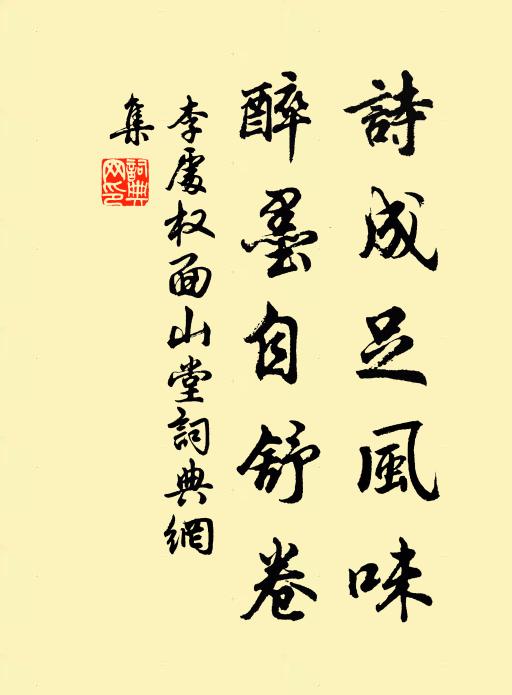 詩成足風味
醉墨自舒卷
李處权面山堂詞典網
集
詞典網印